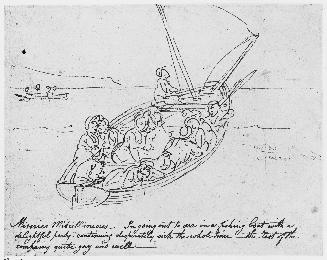 Miseries Miscellaneous. In going out to sea in a fishing boat with a
delightful party - continuing desperately sick the whole time - the rest of the
company quite gay and well